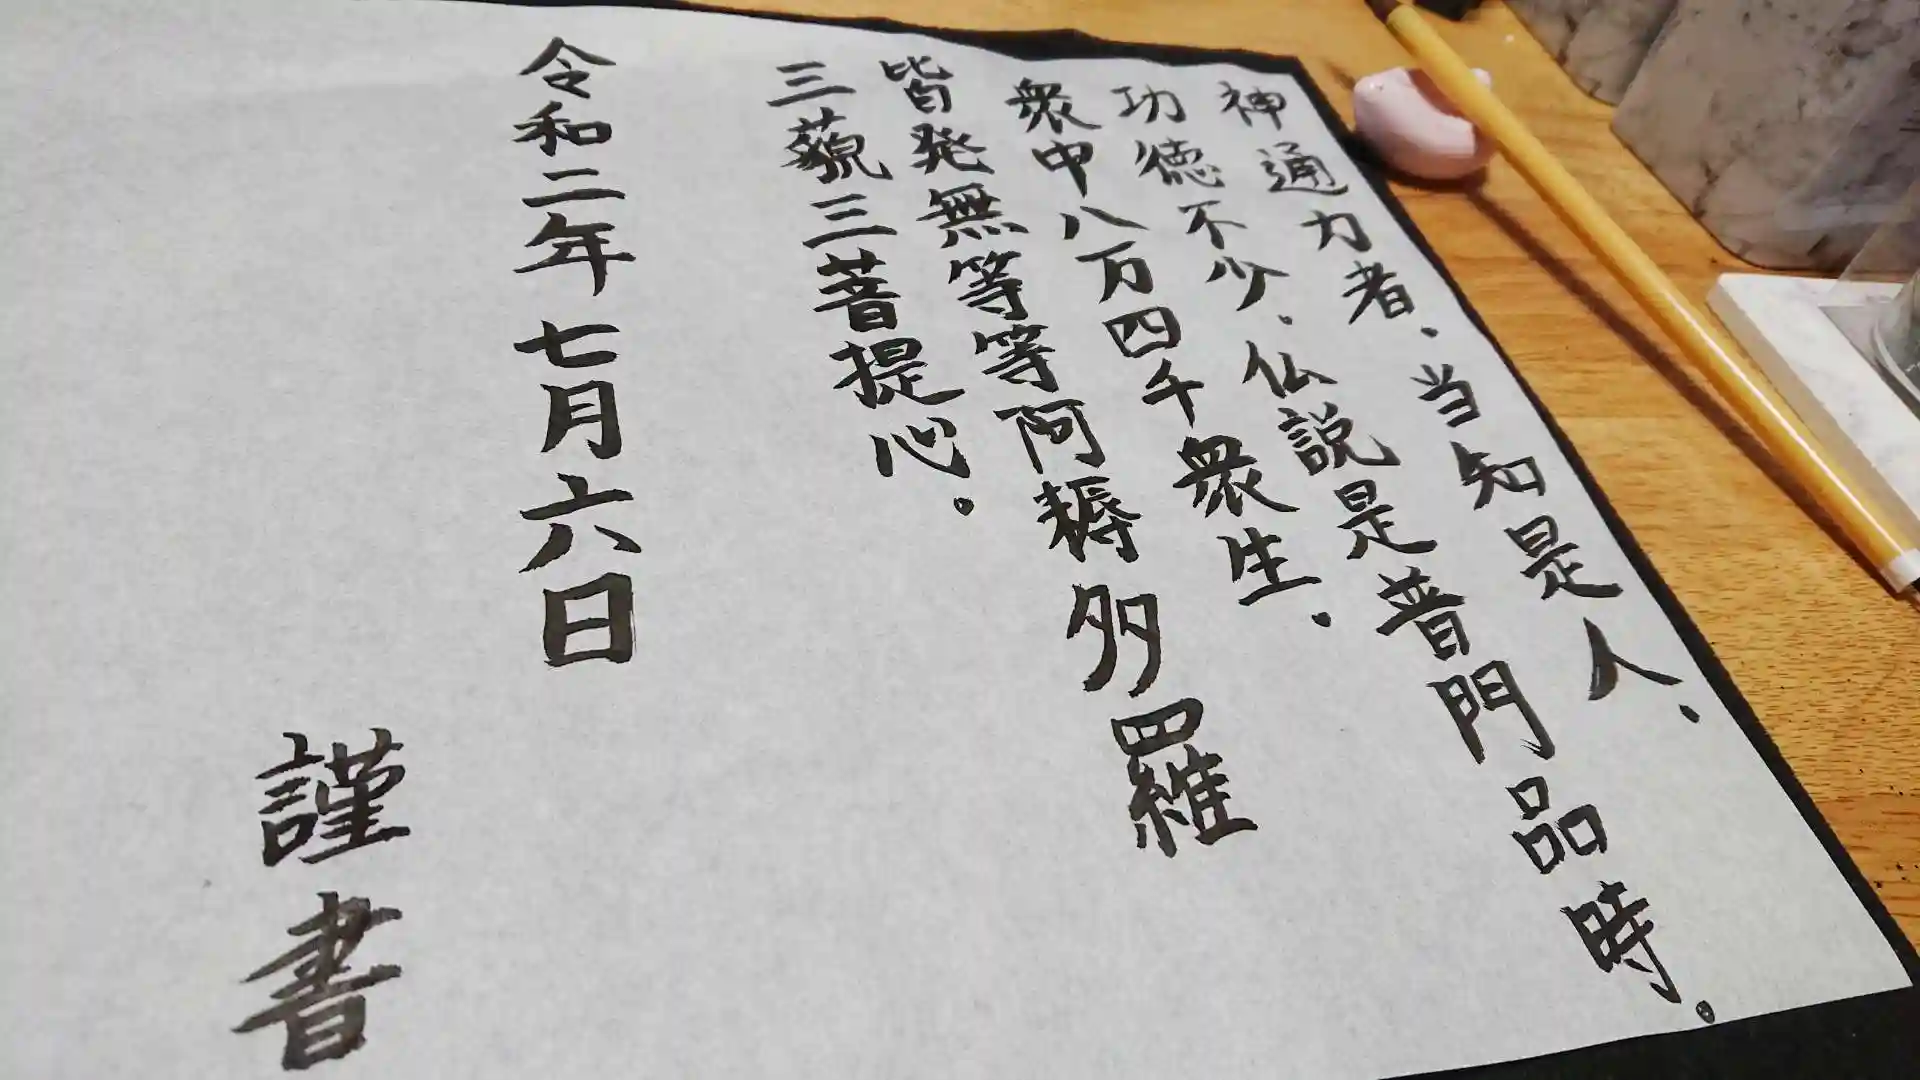 神通力者、当知是人、
功徳不少、仏説是普門品時。
衆中八万四千衆生、
皆発無等等阿耨多羅
三藐三菩提心。
令和二年七月六日
謹書